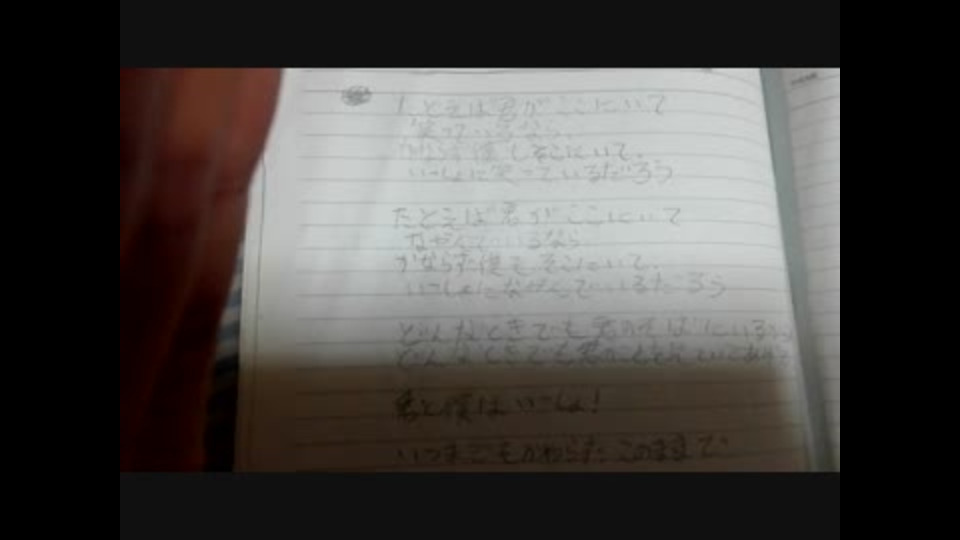 たとえば君がここにいて
笑っているなら、
かならず僕もそこにいて、
いっしょに笑っているだろう
たとえば君がここにいて
なやんでいるなら
かならず僕もそこにいて、
いっしょになやんでいるだろう
どんなときでも君のそばにいる
どんなときでも君のこと
君と僕はいっしょ!
いつまでもかわらずこのままで